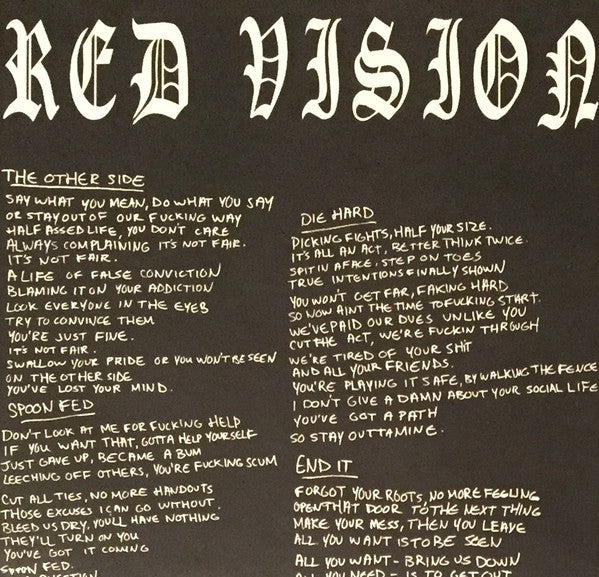 RED VISION
THE OTHER SIDE
SAY WHAT YOU MEAN, DO WHAT YOU SAY
OR STAY OUT OF OUR FUCKING WAY
HALF ASSED LIFE, YOU DON'T CARE
ALWAYS COMPLAINING IT'S NOT FAIR.
IT'S NOT FAIR.
A LIFE OF FALSE CONVICTION
BLAMING IT ON YOUR ADDICTION
LOOK EVERYONE IN THE EYES
TRY TO CONVINCE THEM
YOU'RE JUST FINE.
IT'S NOT FAIR.
SWALLOW YOUR PRIDE OR YOU WON'T BE SEEN
ON THE OTHER SIDE
YOU'VE LOST YOUR MIND.
SPOON FED
DON'T LOOK AT ME FOR FUCKING HELP
IF YOU WANT THAT, GOTTA HELP YOURSELF
JUST GAVE UP, BECAME A BUM
LEECHING OFF OTHERS, YOU'RE FUCKING SCUM
CUT ALL TIES, NO MORE HANDOUTS
THOSE EXCUSES I CAN GO WITHOUT.
BLEED US DRY, YOU'LL HAVE NOTHING
THEY'LL TURN ON YOU
YOU'VE GOT IT COMING
SPOON FED.
QUESTION
DIE HARD
PICKING FIGHTS, HALF YOUR SIZE.
IT'S ALL AN ACT, BETTER THINK TWICE.
SPIT IN A FACE, STEP ON TOES
TRUE INTENTIONS FINALLY SHOWN
YOU WON'T GET FAR, FAKING HARD
SO NOW AINT THE TIME TO FUCKING START.
WE'VE PAID OUR DUES UNLIKE YOU
CUT THE ACT, WE'RE FUCKIN THROUGH
WE'RE TIRED OF YOUR SHIT
AND ALL YOUR FRIENDS.
YOU'RE PLAYING IT SAFE, BY WALKING THE FENCE
I DON'T GIVE A DAMN ABOUT YOUR SOCIAL LIFE
YOU'VE GOT A PATH
SO STAY OUTTA MINE.
END IT
FORGOT YOUR ROOTS, NO MORE FEELING
OPEN THAT DOOR TO THE NEXT THING
MAKE YOUR MESS, THEN YOU LEAVE
ALL YOU WANT IS TO BE SEEN
ALL YOU WANT - BRING US DOWN
ALL YOU NEED - IS TO GET OUT